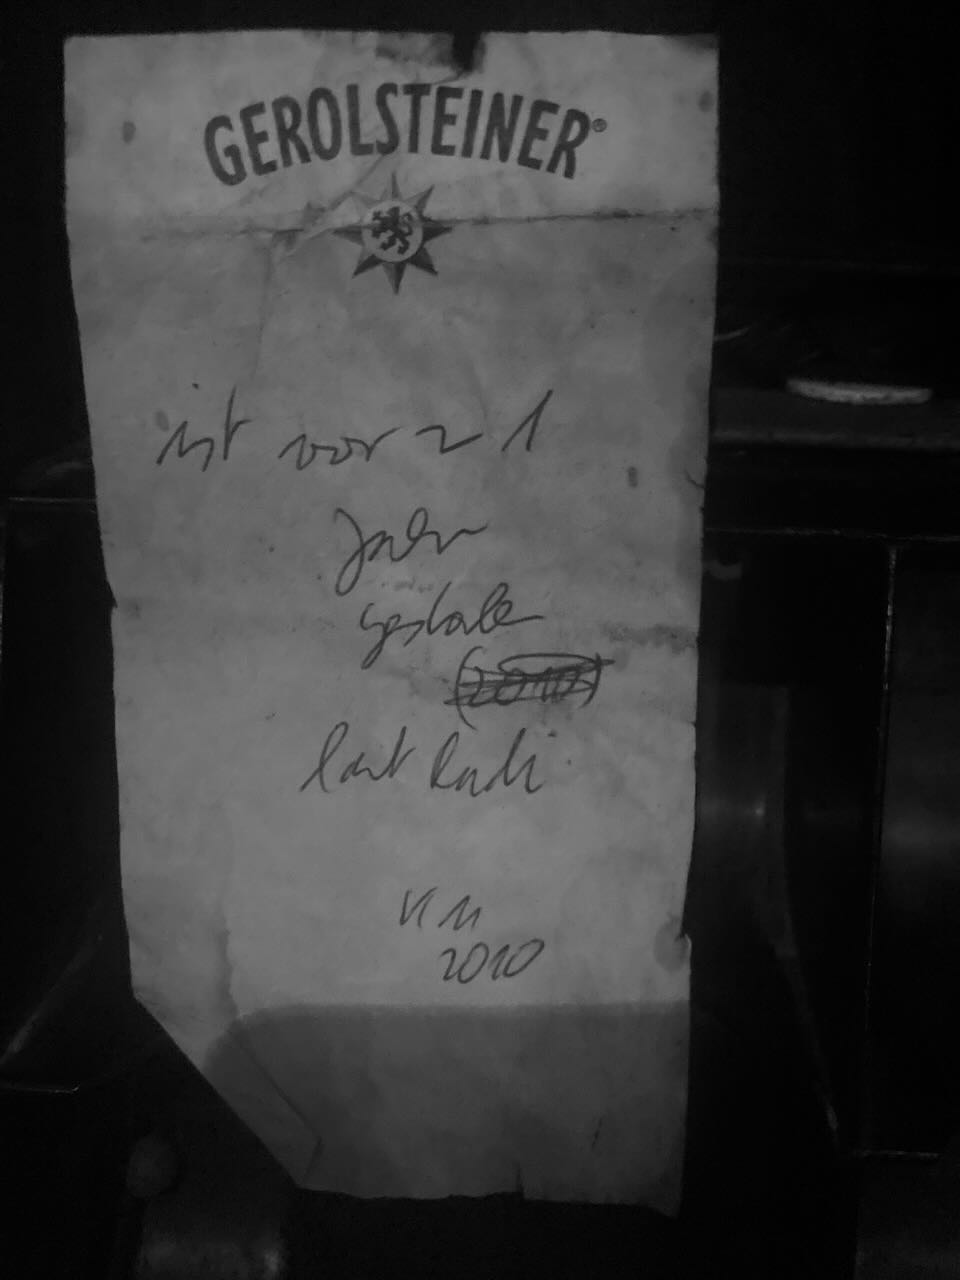 GEROLSTEINER®
ist vor 21
Jahren
gestorben
(2010)
laut Radi
VI 11
2010